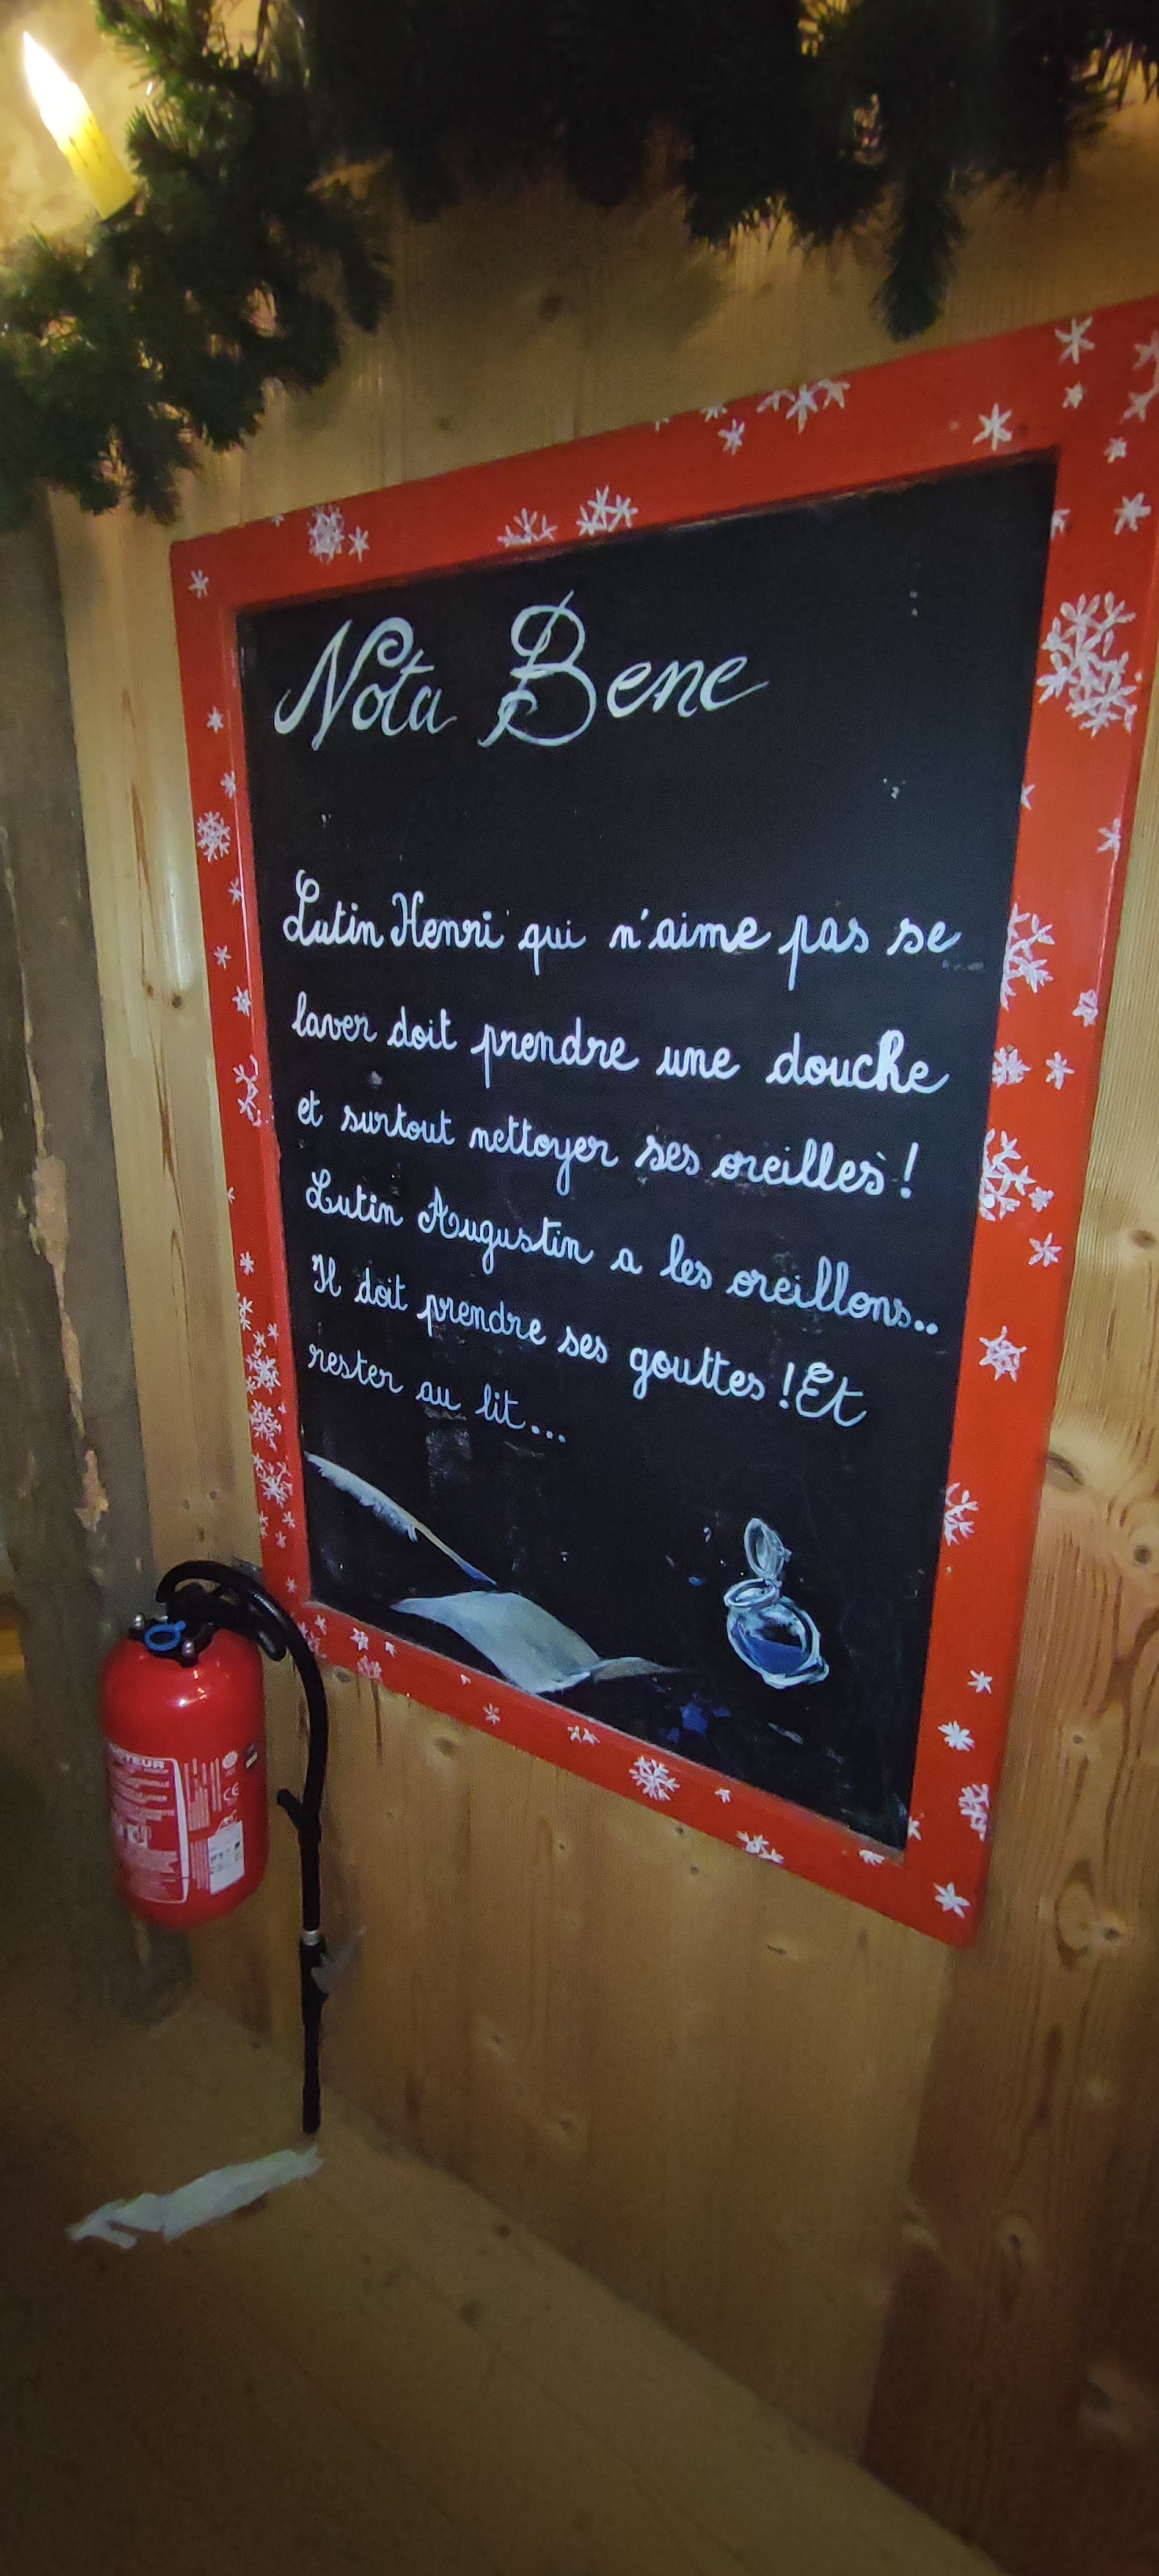 Nota Bene
Lutin Henri qui n'aime pas se
laver doit prendre une douche
et surtout nettoyer ses oreilles !
Lutin Augustin a les oreillons..
Il doit prendre ses gouttes ! Et
rester au lit...
CE